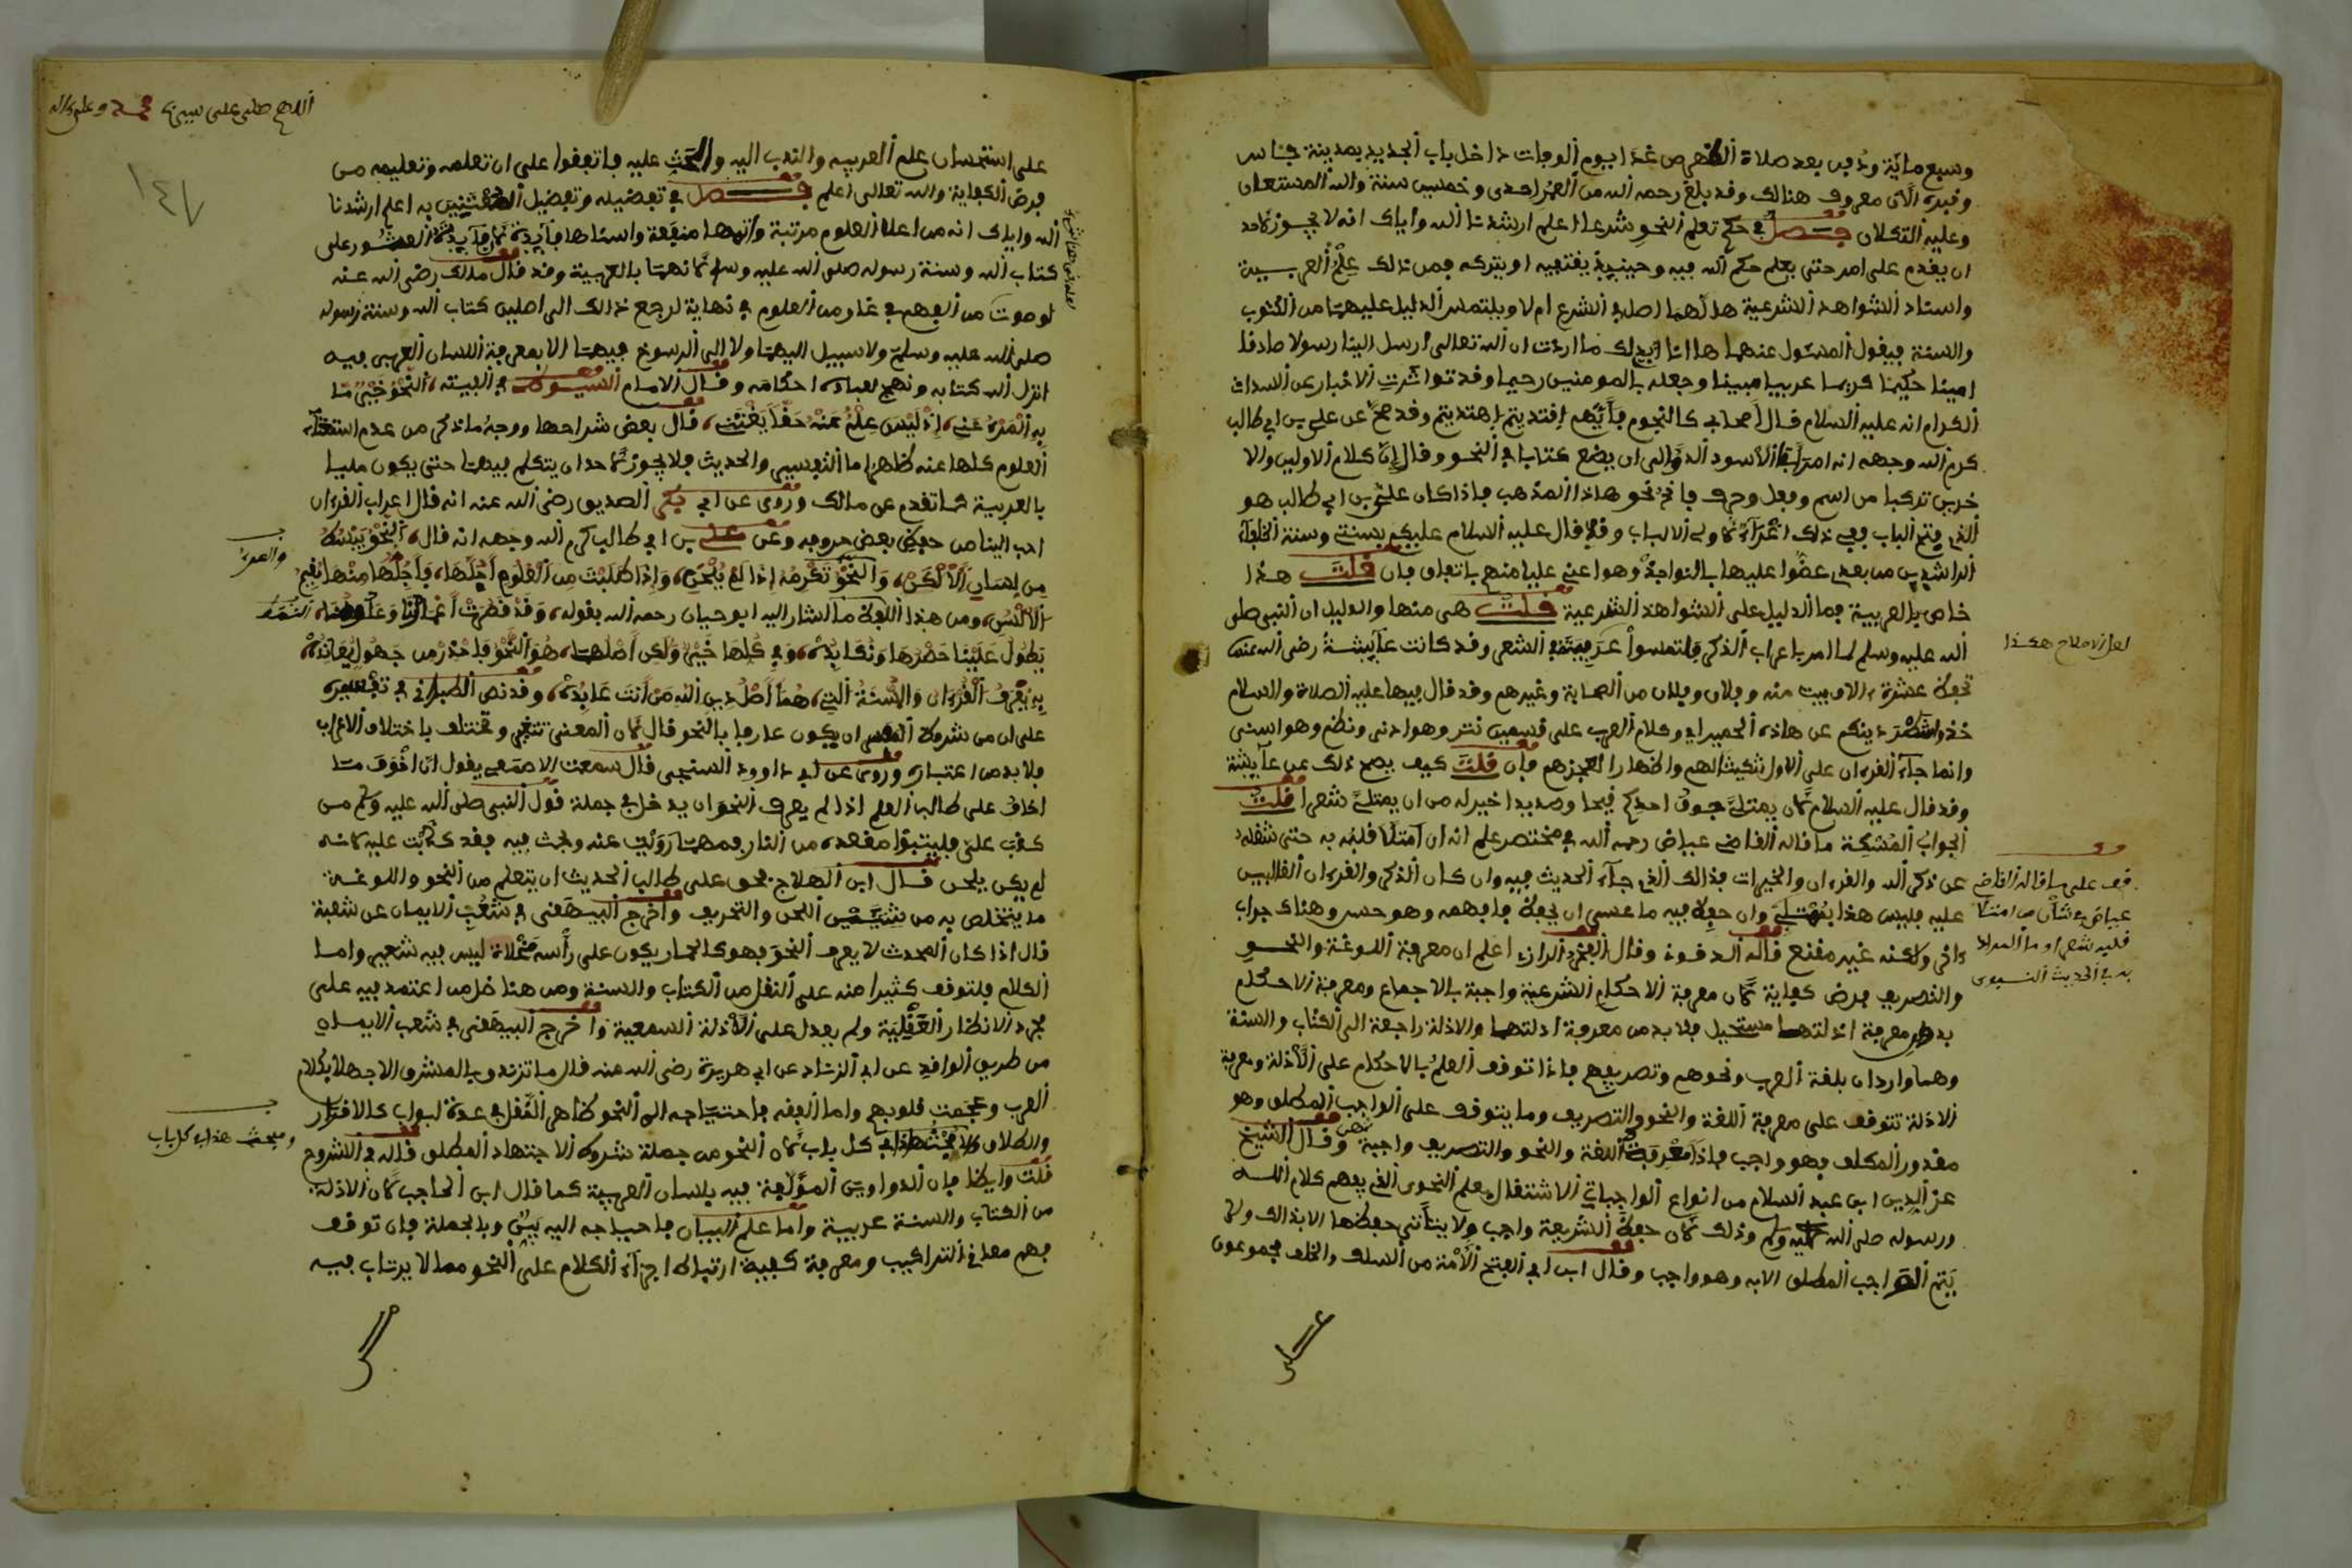 وسبع مائة ودفن بعد صلاة الظهر من غد يوم الوفات داخل باب الجديد بمدينة فاس
وقبره الآن معروف هنالك وقد بلغ رحمه الله من العمر احدى وخمسين سنة والله المستعان
وعليه التكلان فصل في حكم تعلم النحو شرعا اعلم ارشدنا الله واياك انه لا يجوز لاحد
ان يقدم على امر حتى يعلم حكم الله فيه وحينيذ يقتفيه او يتركه فمن ذلك علم العربية
واسناد الشواهد الشرعية هل لهما اصل في الشرع ام لا ويلتمس الدليل عليهما من الكتوب
والسنة فيقول المسئول عنهما ها انا افيدك ما اردت ان الله تعالى ارسل الينا رسولا صادقا
امينا حكيما كريما عربيا مبينا وجعله بالمومنين رحيما وقد تواترت الاخبار عن السدات
الكرام انه عليه السلام قال اصحابي كالنجوم بأيهم اقتديتم اهتديتم وقد صح عن علي بن ابي طالب
كرم الله وجهه انه امر ابا الاسود الدؤالي ان يضع كتابا في النحو وقال ان كلام الاولين والا
خرين تركبا من اسم وفعل وحرف فانح نحو هاذا المذهب فاذا كان علي بن ابي طالب هو
الذي فتح الباب ففي ذلك اغراء لاولى الالباب وقد قال عليه السلام عليكم بسنتي وسنة الخلفاء
الراشدين من بعدي عضوا عليها بالنواجذ وهو اعني عليا منهم باتفاق فان قلت هذا
خاص بالعربية فما الدليل على الشواهد الشرعية قلت هي منها والدليل ان النبي صلى
الله عليه وسلم لما امر باعراب الذكر فالتمسوا عربيته في الشعر وقد كانت عايشة رضي الله عنها
تحفظ عشرة الاف بيت منه وفلان وفلان من الصحابة وغيرهم وقد قال فيها عليه الصلاة والسلام
خذوا شطر دينكم عن هاذه الحميراء وكلام العرب على قسمين نثر وهو ادنى ونظم وهو اسنى
وانما جاء القرءان على الاول تنكيثا لهم واظهارا لعجزهم فان قلت كيف يصح ذلك عن عايشة
وقد قال عليه السلام لان يمتلئ جوف احدكم قيحا وصديدا خير له من ان يمتلئ شعرا قلت
الجواب المسكة ما قاله القاضي عياض رحمه الله في مختصر علم انه ان امتلا قلبه به حتى شغله
عن ذكر الله والقرءان والخيرات فذالك الذي جاء الحديث فيه وان كان الذكر والقرءان الغالبين
عليه فليس هذا بممتلئ وان حفظ فيه ما عسى ان يحفظ فافهمه وهو حسن وهناك جواب
ءاخر ولكنه غير مقنع قاله وقال الفخر الرازي اعلم ان معرفة اللوغة والنحو
والتصريف فرض كفاية لان معرفة الاحكام الشرعية واجبة بالاجماع ومعرفة الاحكام
بدون معرفة ادلتها مستحيل فلا بد من معرفة ادلتها والادلة راجعة الى الكتاب والسنة
وهما واردان بلغة العرب ونحوهم وتصريفهم فاذا توقف العلم بالاحكام على الادلة ومعرفة
الادلة تتوقف على معرفة اللغة والنحو والتصريف وما يتوقف على الواجب المطلق وهو
مقدور المكلف فهو واجب فاذا معرفة اللغة والنحو والتصريف واجبة وقال الشيخ
عز الدين ابن عبد السلام من انواع الواجبات الاشتغال بعلم النحو الذي يفهم كلام الله
ورسوله صلى الله عليه وسلم وذلك لان حفظ الشريعة واجب ولا يتأتى حفظها الا بذالك ولا
يتم الواجب المطلق الا به وهو واجب وقال ابن ابي الفتح الامة من السلف والخلف مجموعون
لعل الاصلاح هكذا
قف على ما قاله القاضي
عياض في شأن من امتلا
قلبه شعرا وما المراد
به في الحديث النبوي
اللهم صل على سيدنا محمد وعلى ءاله
١٤٧
على استحسان علم العربية والندب اليه والحث عليه واتفقوا على ان تعلمه وتعليمه من
فرض الكفاية والله تعالى اعلم فصل في تفضيله وتفضيل المعتنين به اعلم ارشدنا
الله واياك انه من اعلا العلوم مرتبة واتمها منفعة واسناها فايدة لان فايدته العثور على
كتاب الله وسنة رسوله صلى الله عليه وسلم لانهما بالعربية وقد قال مالك رضي الله عنه
لو صرت من الفهم في غاية ومن العلوم في نهاية لرجع ذالك الى اصلين كتاب الله وسنة رسوله
صلى الله عليه وسلم ولا سبيل اليهما ولا الى الرسوخ فيهما الا بمعرفة اللسان العربي فيه
انزل الله كتابه ونهج لعباده احكامه وقال الامام السيوطي في الفيته، النحو خير ما
به المرء عني، اذ ليس علم عنه حقا يغتني، قال بعض شراحها ووجه ما ذكر من عدم استغناء
العلوم كلها عنه ظاهر اما التفسير والحديث فلا يجوز لاحد ان يتكلم فيهما حتى يكون مليا
بالعربية كما تقدم عن مالك وروى عن ابي بكر الصديق رضي الله عنه انه قال اعراب القرءان
احب الينا من حفظ بعض حروفه وعن علي بن ابي طالب كرم الله وجهه انه قال، النحو يبسط
من لسان الالكن، والنحو تكرمه اذا لم يلحن، واذا طلبت من العلوم اجلها، فاجلها منها مقيم
الالسن، ومن هذا اللفظ ما اشار اليه ابو حيان رحمه الله بقوله، وقد قصرت اعمارنا وعلومنا،
يطول علينا حصرها ونكابده، وفي كلها خير ولكن اصلها، هو النحو فاحذر من جهول يعانده،
به يعرف القرءان والسنة التي، هما اصل دين الله من انت عابده، وقد نص الطبراني في تفسيره
على ان من شروط المفسر ان يكون عارفا بالنحو قال لان المعنى تتغير وتختلف باختلاف الاعراب
فلا بد من اعتباره وروى عن ابي داوود السنجي قال سمعت الاصمعي يقول ان اخوف ما
اخاف على طالب العلم اذا لم يعرف النحو ان يدخل في جملة قول النبي صلى الله عليه وسلم من
كذب علي فليتبوأ مقعده من النار فمهما رويت عنه ولحنت فيه فقد كذبت عليه لانه
لم يكن يلحن قال ابن الصلاح فحق على طالب الحديث ان يتعلم من النحو واللوغة
ما يتخلص به من شين اللحن والتحريف واخرج البيهقي في شعب الايمان عن شعبة
قال اذا كان المحدث لا يعرف النحو فهو كالحمار يكون على رأسه مخلاة ليس فيه شعير واما
الكلام فلتوقف كثير منه على النقل من الكتاب والسنة ومن هنا ضل من اعتمد فيه على
مجرد الانظار العقلية ولم يعدل على الادلة السمعية واخرج البيهقي في شعب الايمان
من طريق الواقد عن ابي الزناد عن ابي هريرة رضي الله عنه قال ما تزندق بالمشرق الا جهلا بكلام
العرب وعجمت قلوبهم واما الفقه فاحتياجه الى النحو ظاهر في عدة ابواب كالاقرار
والطلاق في كل باب لان النحو من جملة شروط الاجتهاد المطلق قاله في الشروح
قلت وايضا فان الدواوين المؤلفة فيه بلسان العربية كما قال ابن الحاجب لان الادلة
من الكتاب والسنة عربية واما علم البيان فاحياجه اليه بين وبالجملة فان توقف
فهم معاني التراكيب ومعرفة كيفية ارتباط اجزاء الكلام على النحو مما لا يرتاب فيه
ومبحث هذا في كل باب